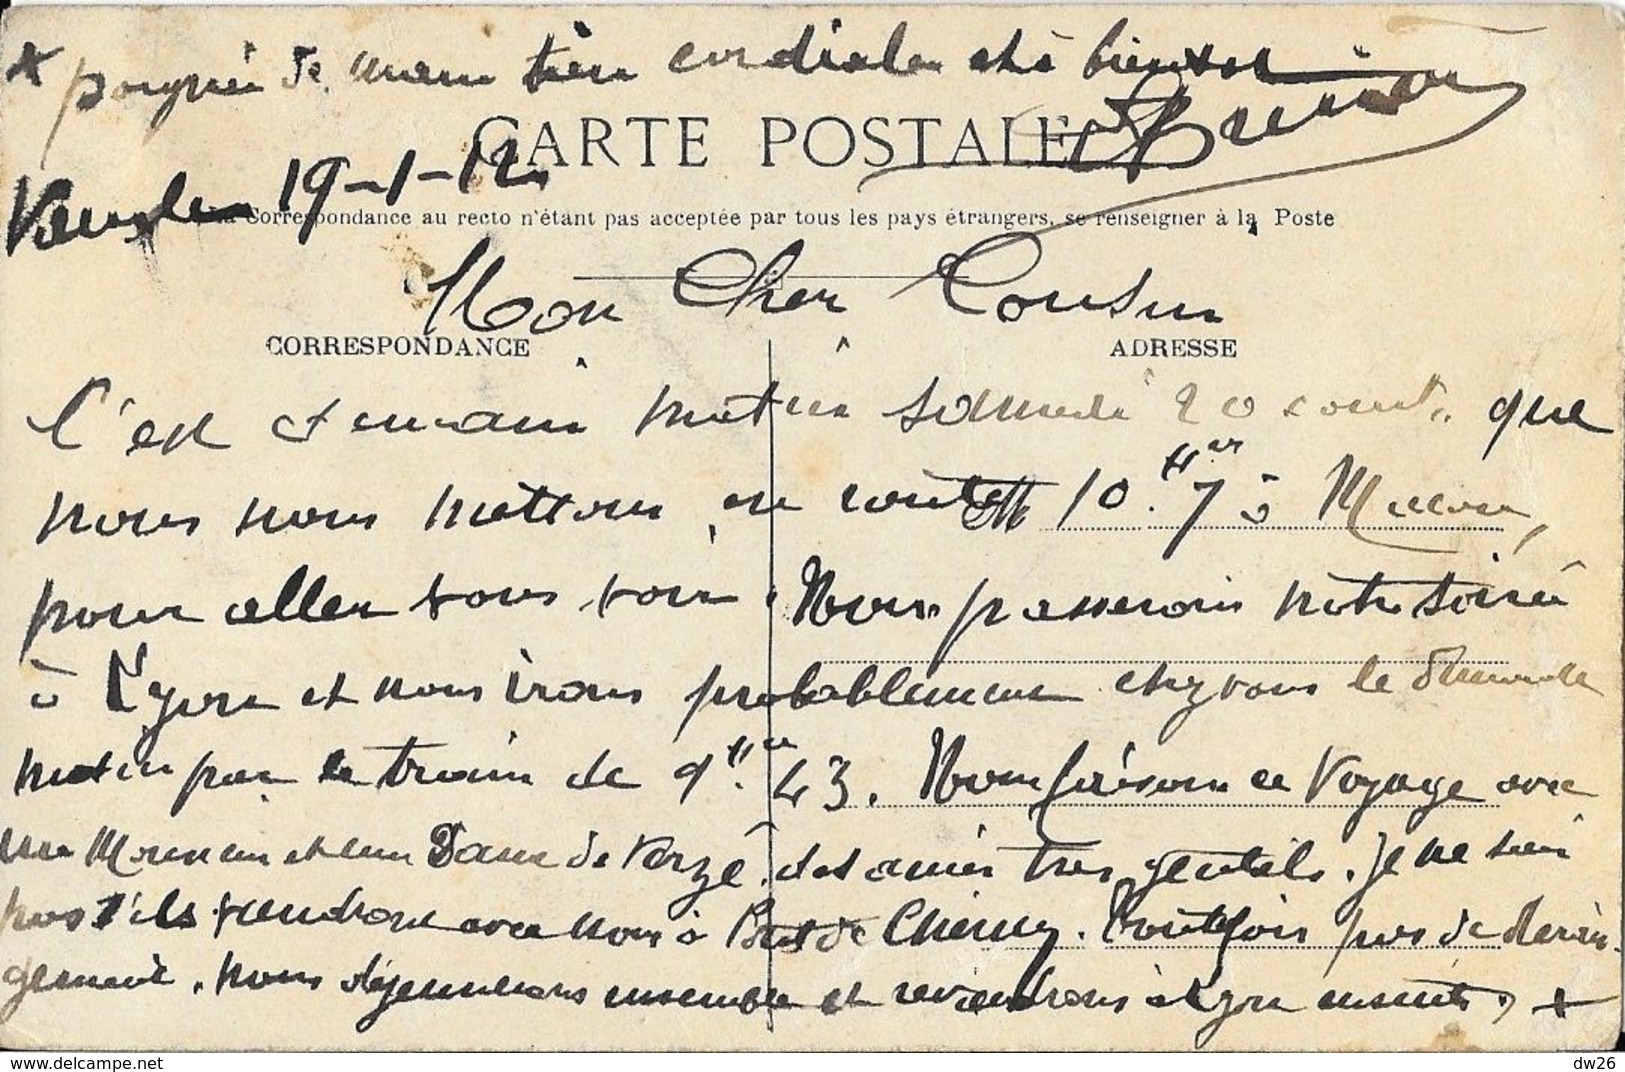 + poignée de main bien cordiale et à bientôt
CARTE POSTALE
19-1-12
La Correspondance au recto n'étant pas acceptée par tous les pays étrangers, se renseigner à la Poste
Mon Cher Cousin
CORRESPONDANCE
ADRESSE
C'est demain matin samedi 20 court. que
nous nous mettons en route 10 Hres 7 à Macon,
pour aller vous voir. Nous passerons notre soirée
à Lyon et nous irons probablement chez vous le dimanche
matin par le train de 9 H.re 43. Nous faisons ce Voyage avec
un Monsieur et une Dame de Verzé, des amis très gentils. Je ne sais
pas s'ils viendront avec nous à Pont de Cheruy. Toutefois pas de déran-
gement. nous déjeunerons ensemble et reviendrons à Lyon ensuite, +
dw26